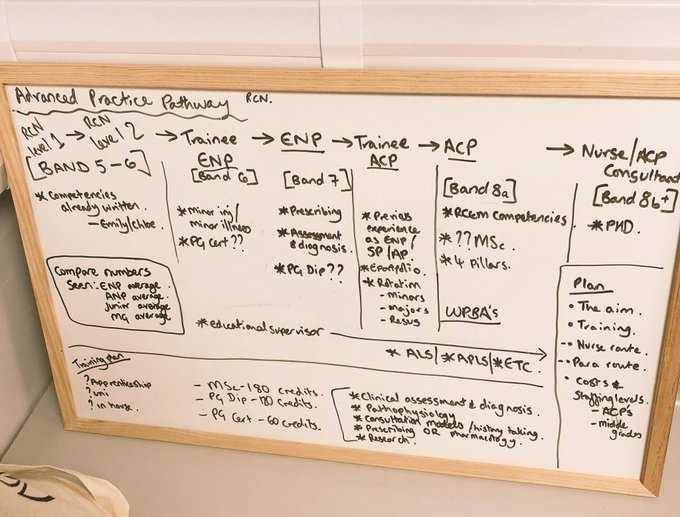 Advanced Practice Pathway RCN.
RCN level 1 → RCN level 2 → Trainee ENP → ENP → Trainee ACP → ACP → Nurse/ACP Consultant
[BAND 5-6]
* Competencies
already written.
- Emily/Chloe
[Band 6]
* Minor inj/
minor illness
* PG Cert ??
[Band 7]
* Prescribing
* Assessment
& diagnosis.
* PG Dip??
* Previous
experience
as ENP/
SP/AP.
* Eportfolio.
* Rotation
- minors
- majors
- Resus
[Band 8a]
* RCEM competencies
* ?? MSc.
* 4 Pillars.
WPBA's
[Band 8b+]
* PHD.
Compare numbers
Seen: ENP average.
ANP average.
junior average
MG average.
* educational supervisor
* ALS / * APLS / * ETC.
Plan
• The aim.
• Training.
-- Nurse route.
-- Para route.
• Costs &
Staffing levels.
- ACP's
- middle
grades
Training plan
? Apprenticeship
? uni
? in house.
- MSc - 180 credits.
- PG Dip - 120 credits.
- PG Cert - 60 credits.
* Clinical assessment & diagnosis.
* Pathophysiology
* Consultation models/history taking.
* Prescribing OR pharmacology.
* Research.